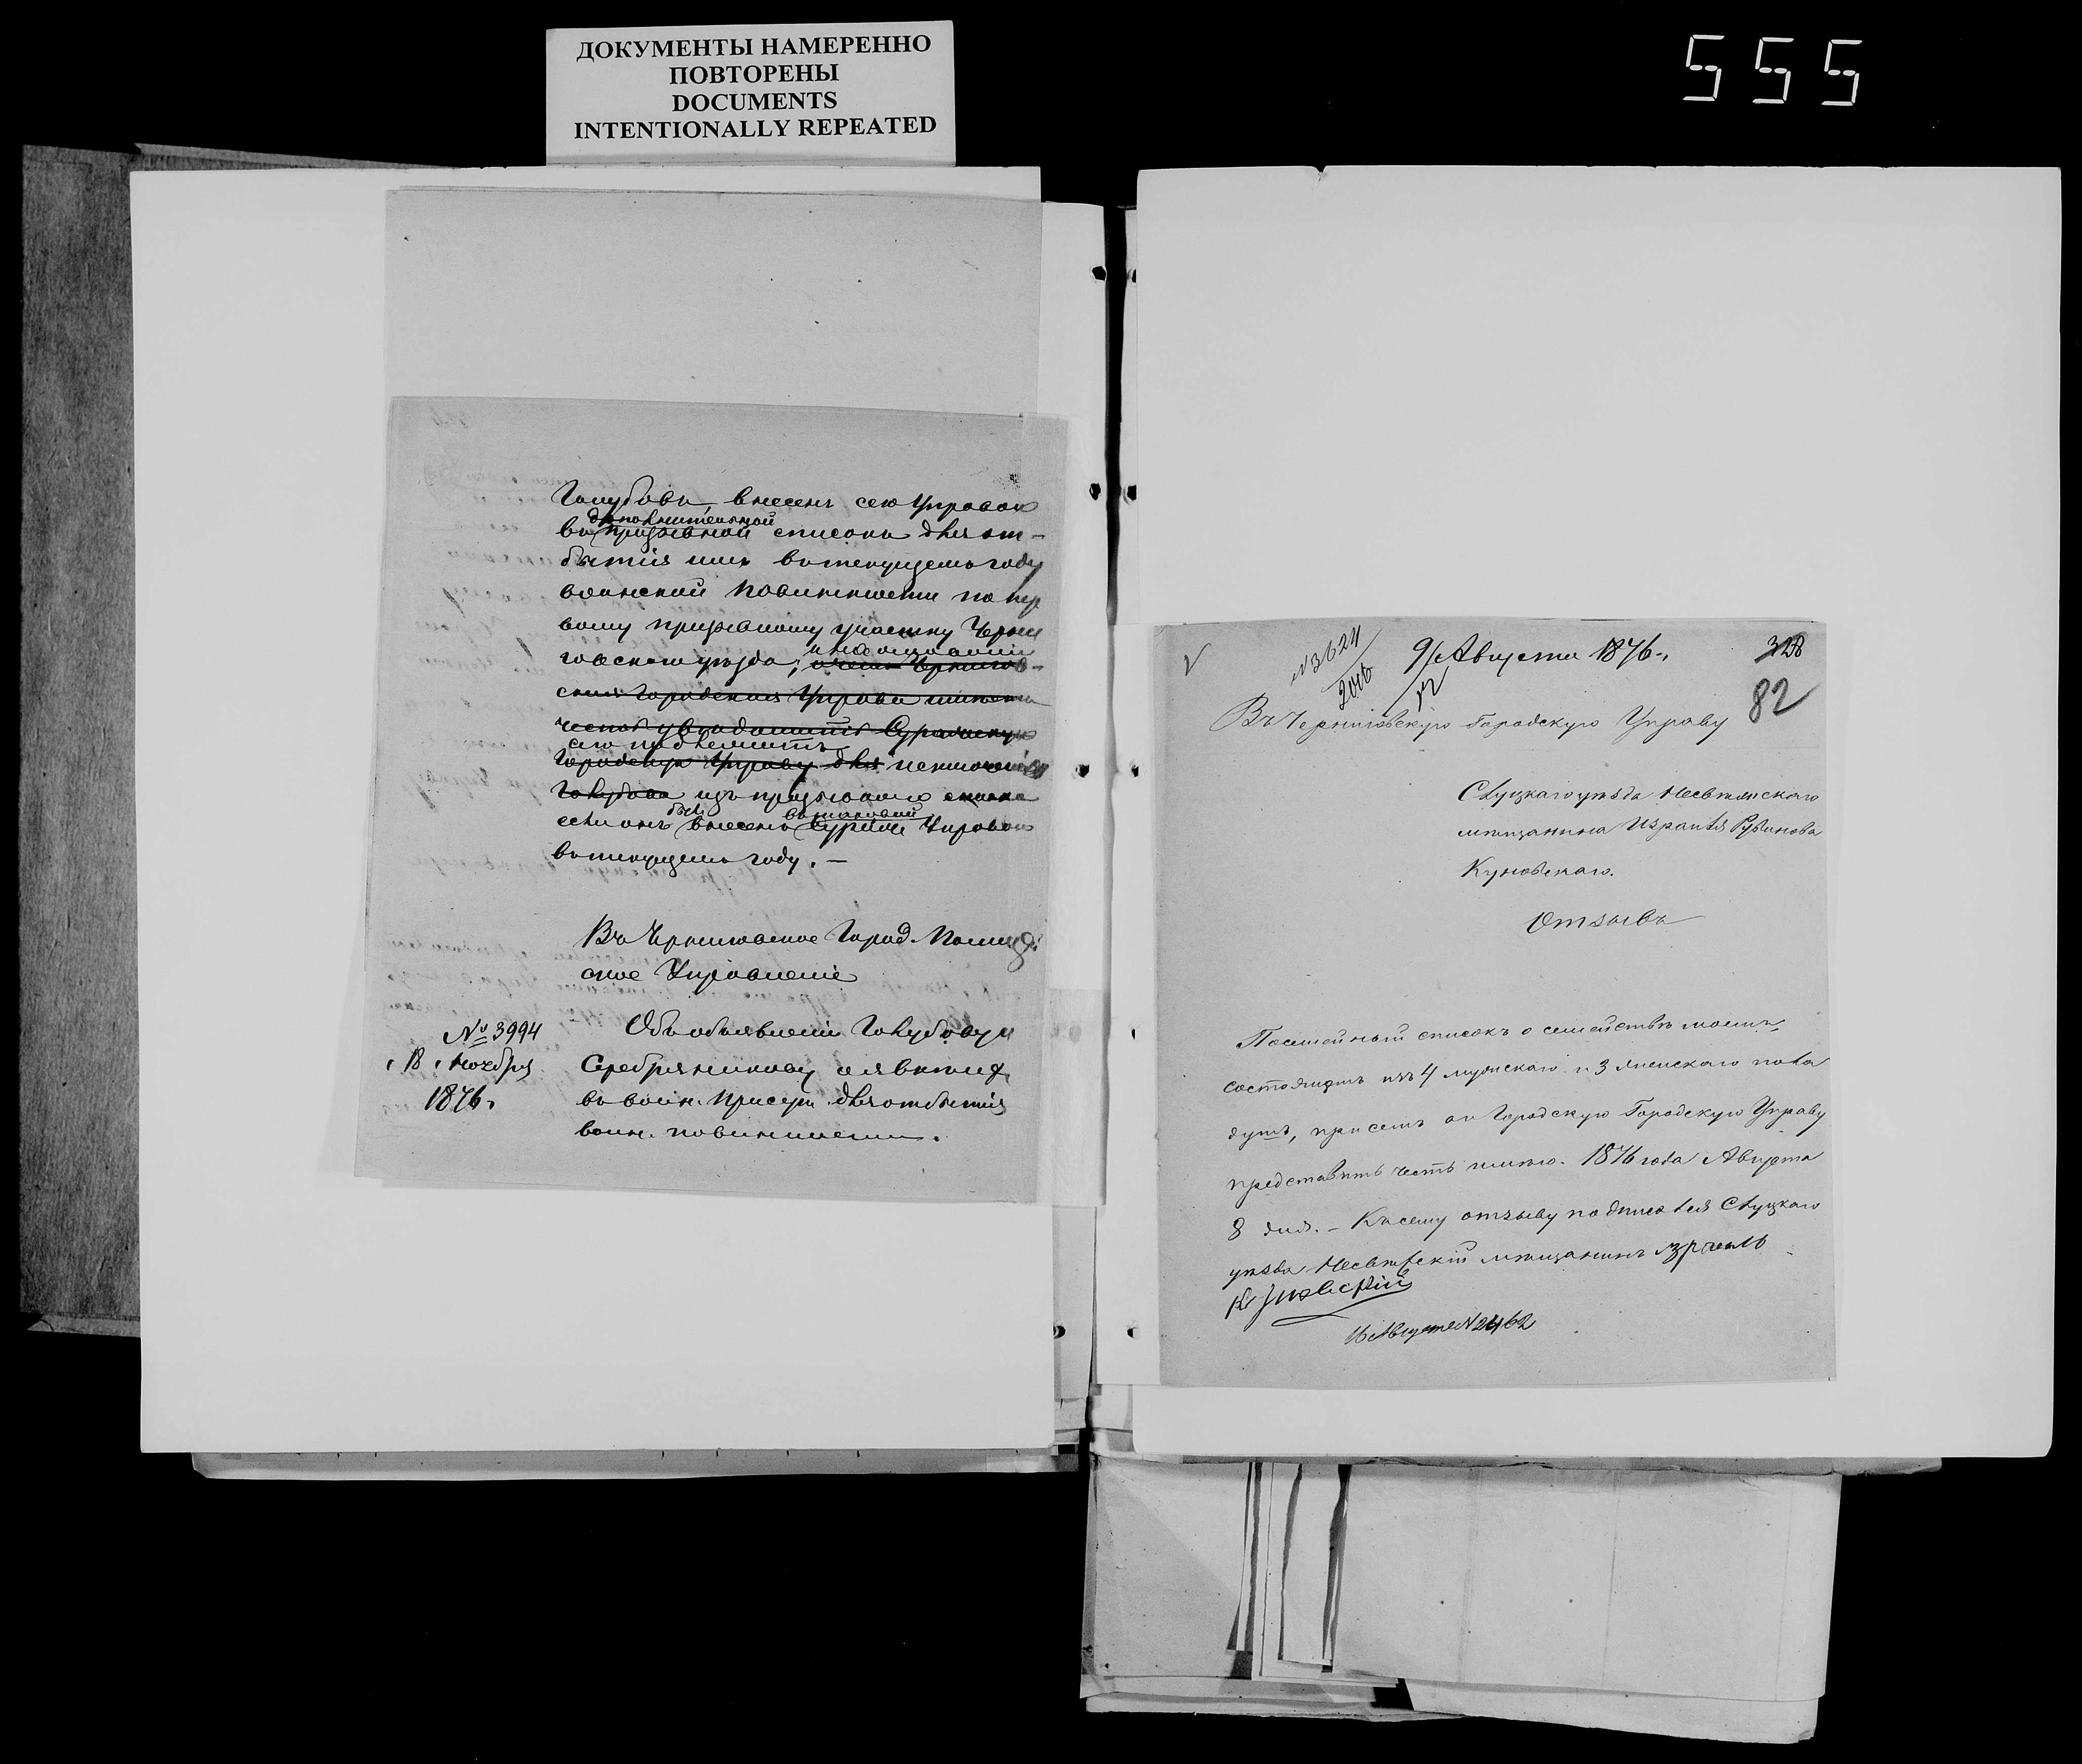 ДОКУМЕНТЫ НАМЕРЕННО
ПОВТОРЕНЫ
DOCUMENTS
INTENTIONALLY REPEATED
555
Голубовъ, внесенъ сею Управою
дополнительной
въ призывной списокъ для от-
бытія имъ въ текущемъ году
воинской повинности по пер
вому призывному участку Черни
говскаго уѣзда;
о чемъ Чернигов-
ская Городская Управа имѣетъ
честь увѣдомить Суражскую
его подлежитъ
Городскую Управу для исключенія
Голубова изъ призывного списка
былъ въ таковой
если онъ внесенъ Сураж Управою
въ текущемъ году. —
Въ Черниговское Город. Полицей
ское Управленіе
№ 3994
18 Ноября
1876 г.
Объ объявленіи Голубову и
Серебрянникову о явкѣ
въ воин. присут. для отбытія
воин. повинности.
№ 3624
9 Августа 1876 г.
328
82
Въ Черниговскую Городскую Управу
Слуцкаго уѣзда Несвижскаго
мѣщанина Израиля Рубинова
Куновскаго.
Отзывъ
Посемейный списокъ о семействѣ моемъ,
состоящемъ изъ 4 мужскаго и 3 женскаго пола
душъ, при семъ въ Городскую Городскую Управу
представить честь имѣю. 1876 года Августа
8 дня. — Къ сему отзыву подписался Слуцкаго
уѣзда Несвижскій мѣщанинъ Израиль
Куновскій
16 Августа № 2462